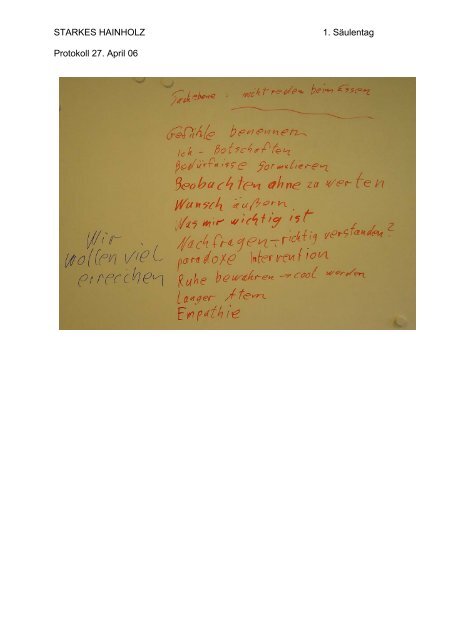 STARKES HAINHOLZ 1. Säulentag
Protokoll 27. April 06
Sachebene : nicht reden beim Essen
Gefühle benennen
Ich - Botschaften
Bedürfnisse formulieren
Beobachten ohne zu werten
Wunsch äußern
Was mir wichtig ist
Nachfragen - richtig verstanden?
paradoxe Intervention
Ruhe bewahren → cool werden
langer Atem
Empathie
Wir
wollen viel
erreichen